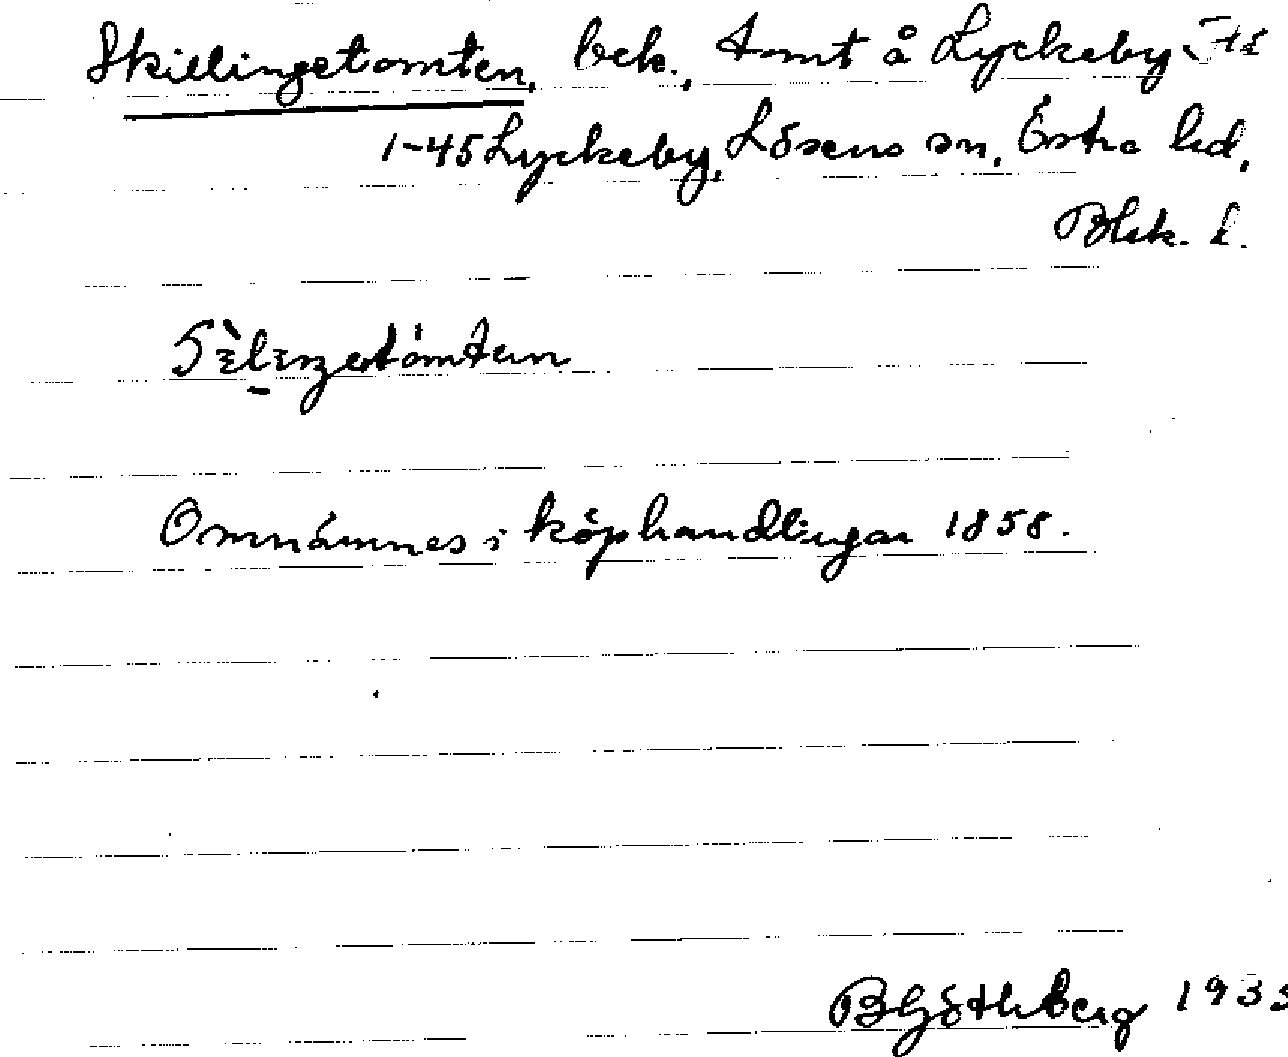 Skillingetomten, bek., tomt å Lyckeby
1-45 Lyckeby, Lösens sn, Östra hd,
Blek. l.
Omnämnes i köphandlingar 1858.
B Göthberg 1933